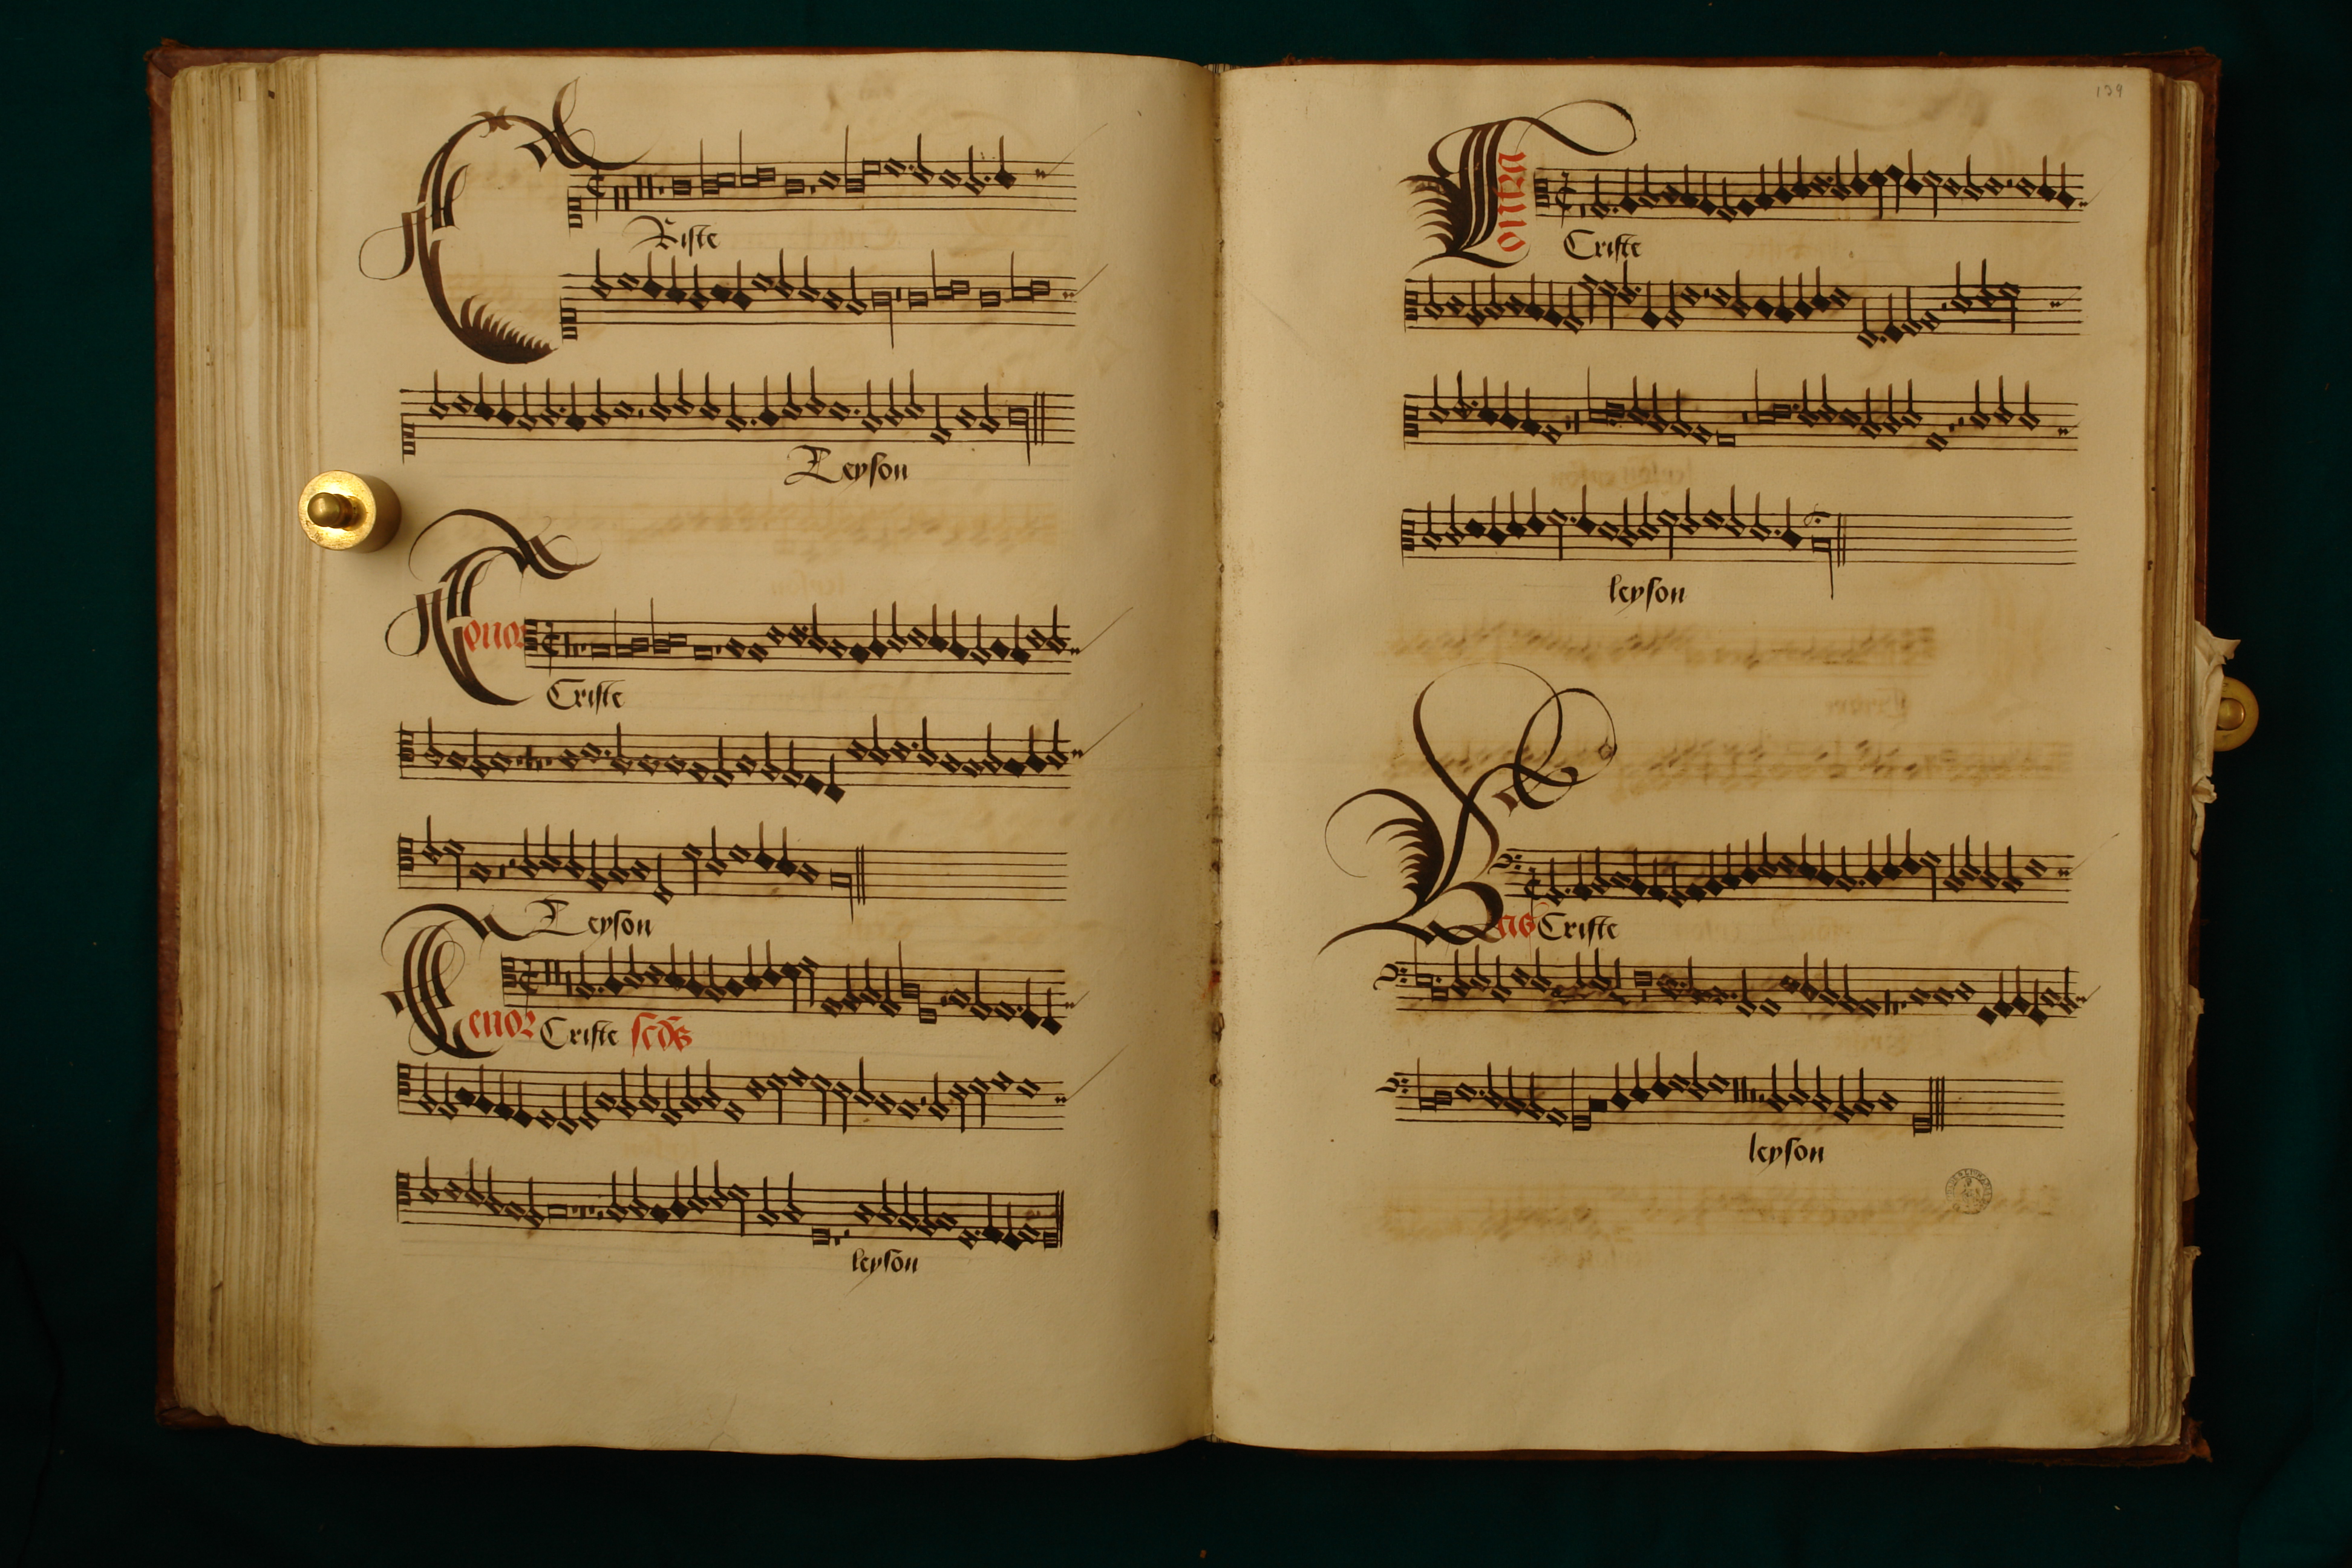 CRiste
Leyson
Tenor
Criste
Leyson
Tenor Criste scd9
leyson
139
Contra
Criste
leyson
Bas Criste
leyson